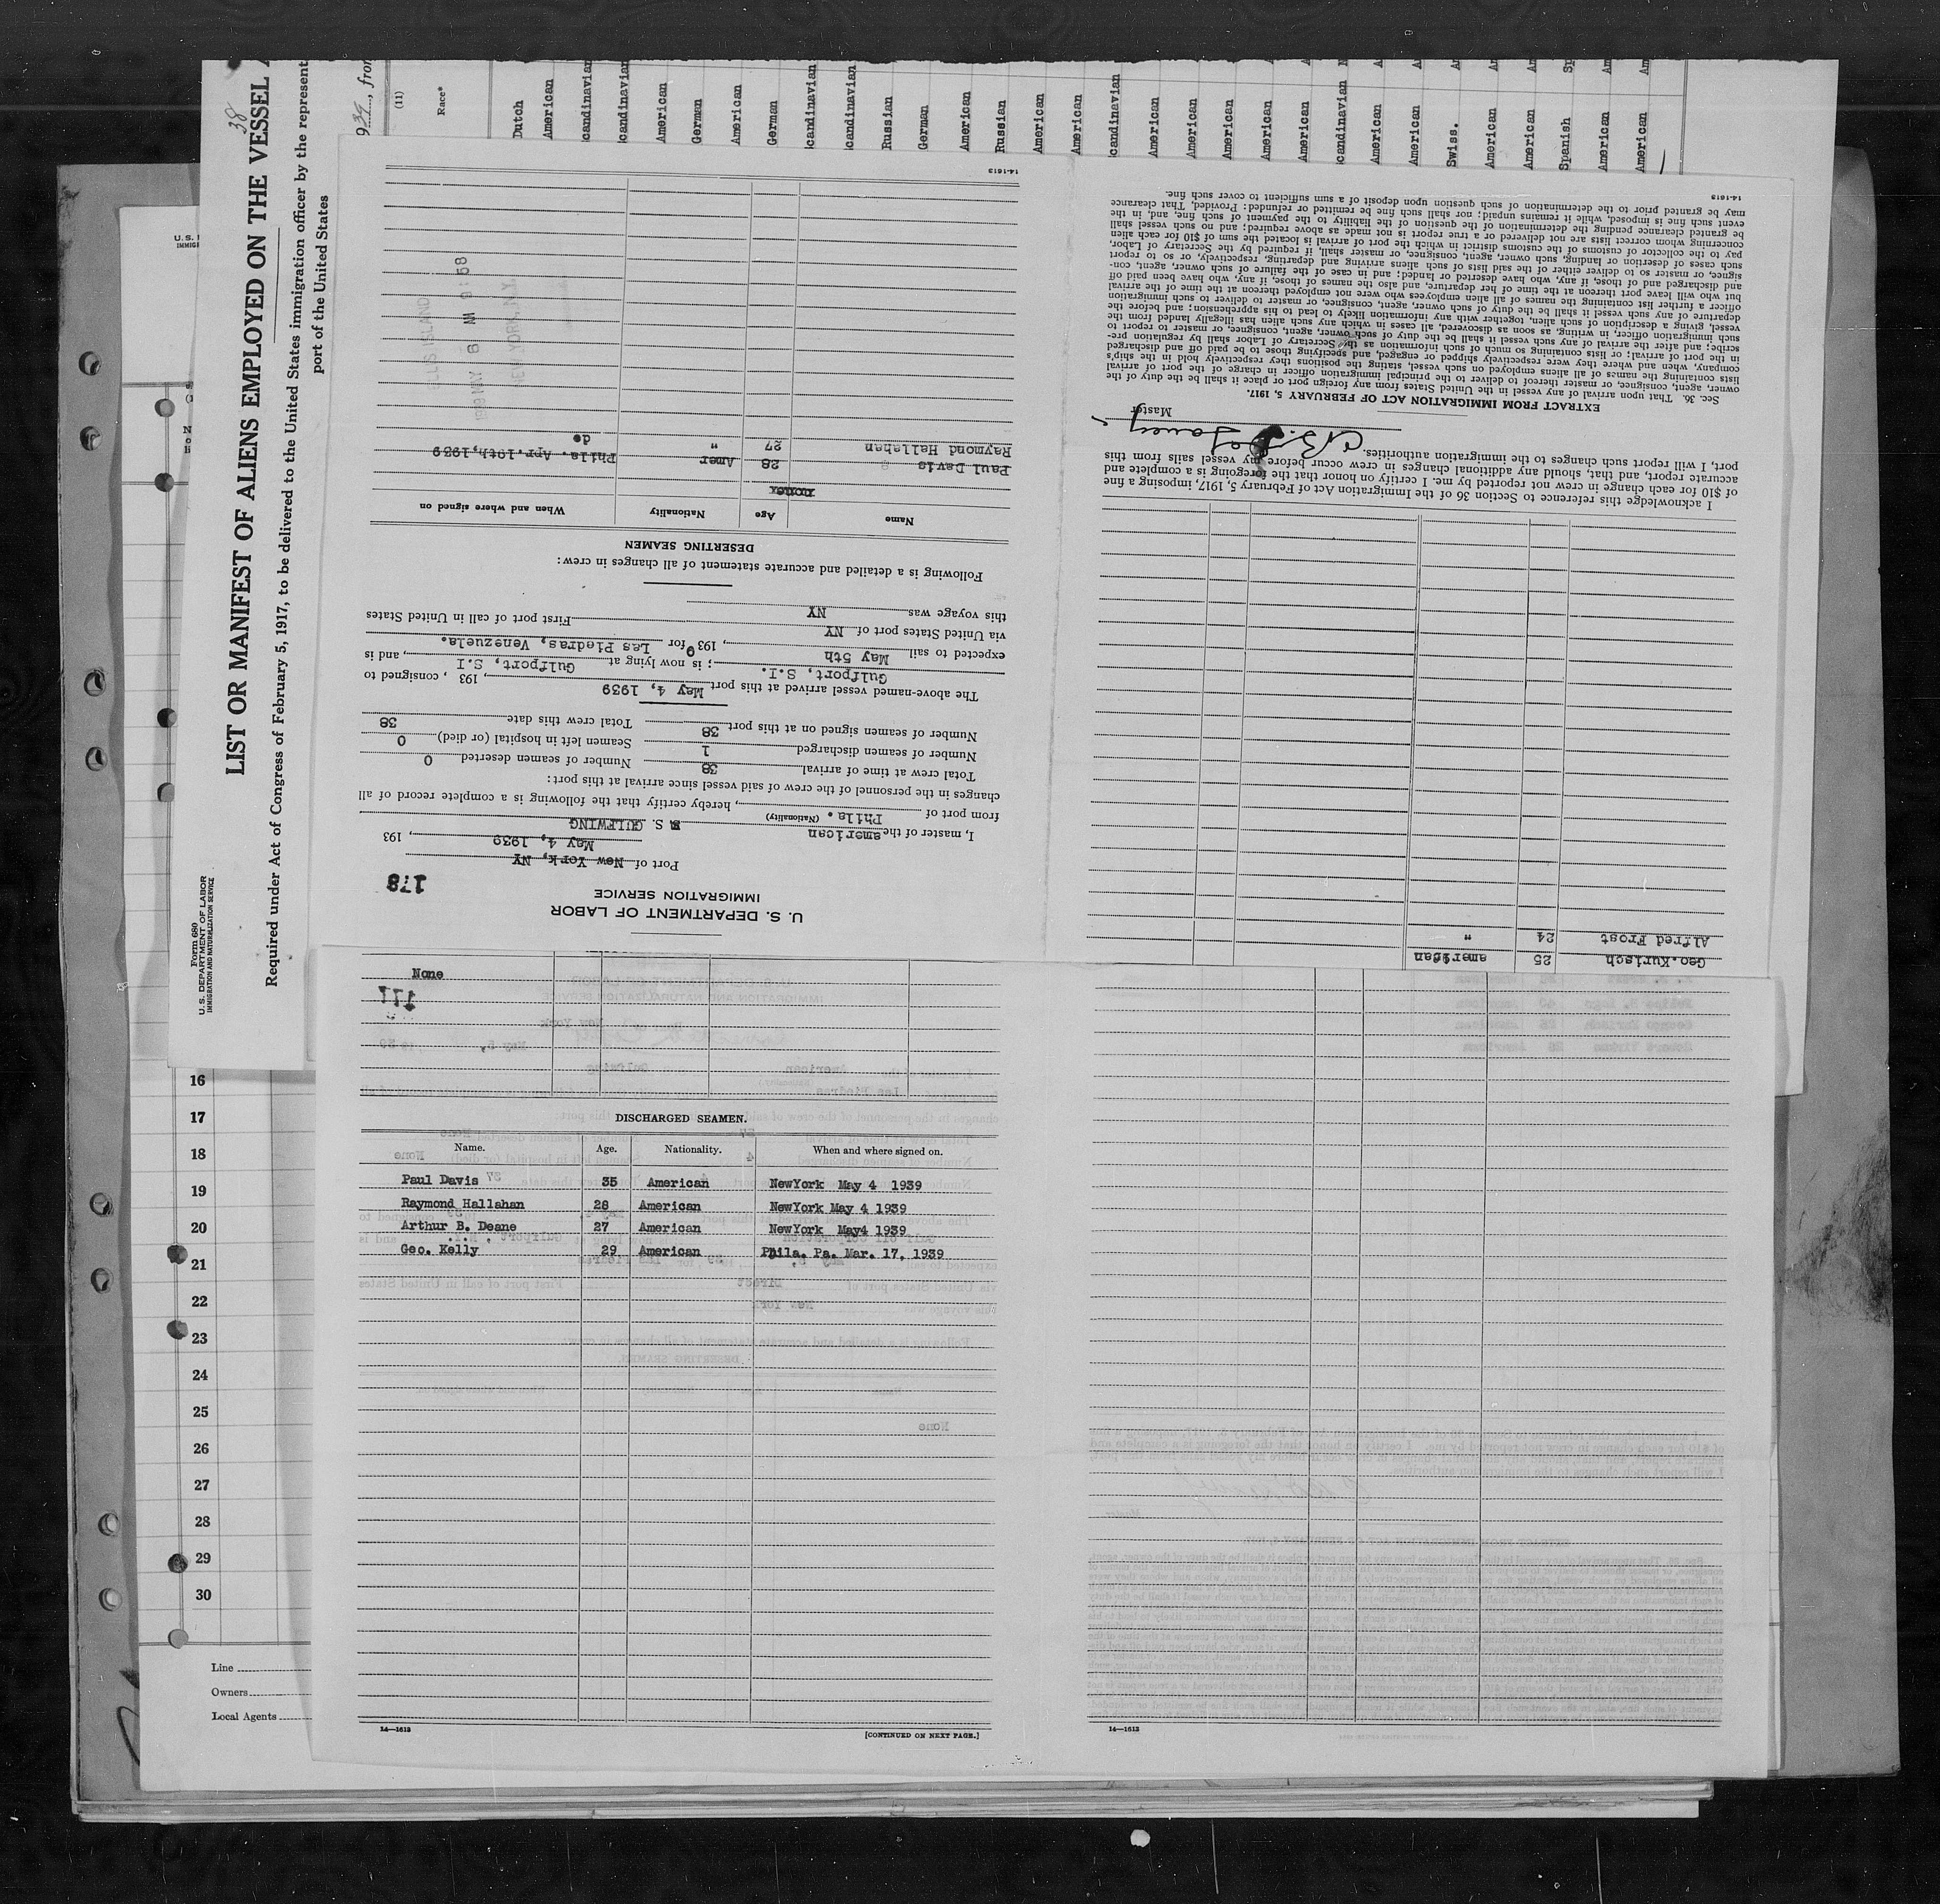 38
LIST OR MANIFEST OF ALIENS EMPLOYED ON THE VESSEL
Required under Act of Congress of February 5, 1917, to be delivered to the United States immigration officer by the represent
port of the United States
Form 680
U. S. DEPARTMENT OF LABOR
IMMIGRATION AND NATURALIZATION SERVICE
(11)
Race*
Dutch
American
candinavian
candinavian
American
German
American
German
candinavian
candinavian
Russian
German
American
Russian
American
American
candinavian
American
American
American
American
American
candinavian
American
American
Swiss.
American
American
Spanish
American
American
U. S. DEPARTMENT OF LABOR
IMMIGRATION SERVICE
178
Port of New York, NY
May 4, 1939, 193
I, master of the american S. GULFWING
(Nationality)
from port of Phila., hereby certify that the following is a complete record of all
changes in the personnel of the crew of said vessel since arrival at this port:
Total crew at time of arrival 38 Number of seamen deserted 0
Number of seamen discharged 1 Seamen left in hospital (or died) 0
Number of seamen signed on at this port 38 Total crew this date 38
The above-named vessel arrived at this port May 4, 1939, 193 , consigned to
Gulfport, S.I. ; is now lying at Gulfport, S.I , and is
expected to sail May 5th, 1939 for Las Piedras, Venezuela.
via United States port of NY First port of call in United States
this voyage was NY
Following is a detailed and accurate statement of all changes in crew:
DESERTING SEAMEN
Name Age Nationality When and where signed on
Paul Davis 28 Amer Phila. Apr.19th,1939
Raymond Hallahan 27 " do
ELLIS ISLAND
1939 MAY 6 AM 9:58
NEW YORK, N.Y.
14-1613
Geo.Kurisch 25 american
Alfred Frost 24 "
I acknowledge this reference to Section 36 of the Immigration Act of February 5, 1917, imposing a fine
of $10 for each change in crew not reported by me. I certify on honor that the foregoing is a complete and
accurate report, and that, should any additional changes in crew occur before my vessel sails from this
port, I will report such changes to the immigration authorities.
Master
EXTRACT FROM IMMIGRATION ACT OF FEBRUARY 5, 1917.
Sec. 36. That upon arrival of any vessel in the United States from any foreign port or place it shall be the duty of the
owner, agent, consignee, or master thereof to deliver to the principal immigration officer in charge of the port of arrival
lists containing the names of all aliens employed on such vessel, stating the positions they respectively hold in the ship's
company, when and where they were respectively shipped or engaged, and specifying those to be paid off and discharged
in the port of arrival; or lists containing so much of such information as the Secretary of Labor shall by regulation pre-
scribe; and after the arrival of any such vessel it shall be the duty of such owner, agent, consignee, or master to report to
such immigration officer, in writing, as soon as discovered, all cases in which any such alien has illegally landed from the
vessel, giving a description of such alien, together with any information likely to lead to his apprehension; and before the
departure of any such vessel it shall be the duty of such owner, agent, consignee, or master to deliver to such immigration
officer a further list containing the names of all alien employees who were not employed thereon at the time of the arrival
but who will leave port thereon at the time of her departure, and also the names of those, if any, who have been paid off
and discharged and of those, if any, who have deserted or landed; and in case of the failure of such owner, agent, con-
signee, or master so to deliver either of the said lists of such aliens arriving and departing, respectively, or so to report
such cases of desertion or landing, such owner, agent, consignee, or master shall, if required by the Secretary of Labor,
pay to the collector of customs of the customs district in which the port of arrival is located the sum of $10 for each alien
concerning whom correct lists are not delivered or a true report is not made as above required; and no such vessel shall
be granted clearance pending the determination of the question of the liability to the payment of such fine, and, in the
event such fine is imposed, while it remains unpaid; nor shall such fine be remitted or refunded: Provided, That clearance
may be granted prior to the determination of such question upon deposit of a sum sufficient to cover such fine.
14-1613
None
177
DISCHARGED SEAMEN.
Name. Age. Nationality. When and where signed on.
Paul Davis 35 American NewYork May 4 1939
Raymond Hallahan 28 American NewYork May 4 1939
Arthur B. Deane 27 American NewYork May4 1939
Geo. Kelly 29 American Phila. Pa. Mar. 17, 1939
14—1613
[CONTINUED ON NEXT PAGE.]
14—1613
16
17
18
19
20
21
22
23
24
25
26
27
28
29
30
Line
Owners
Local Agents